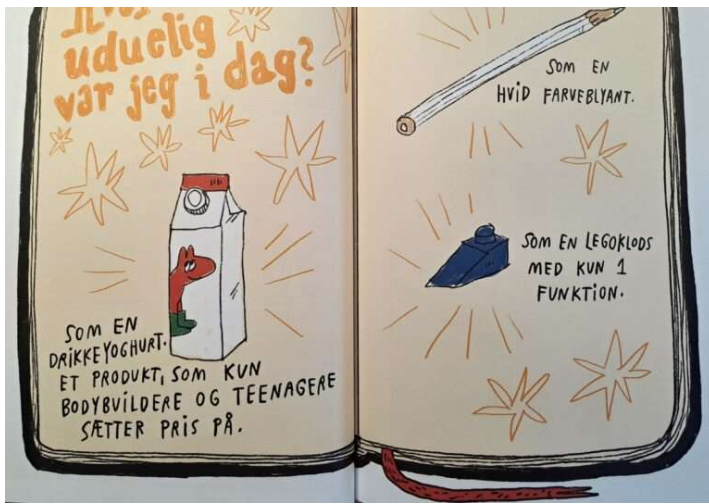 uduelig
var jeg i dag?
SOM EN
DRIKKEYOGHURT.
ET PRODUKT, SOM KUN
BODYBUILDERE OG TEENAGERE
SÆTTER PRIS PÅ.
SOM EN
HVID FARVEBLYANT.
SOM EN LEGOKLODS
MED KUN 1
FUNKTION.